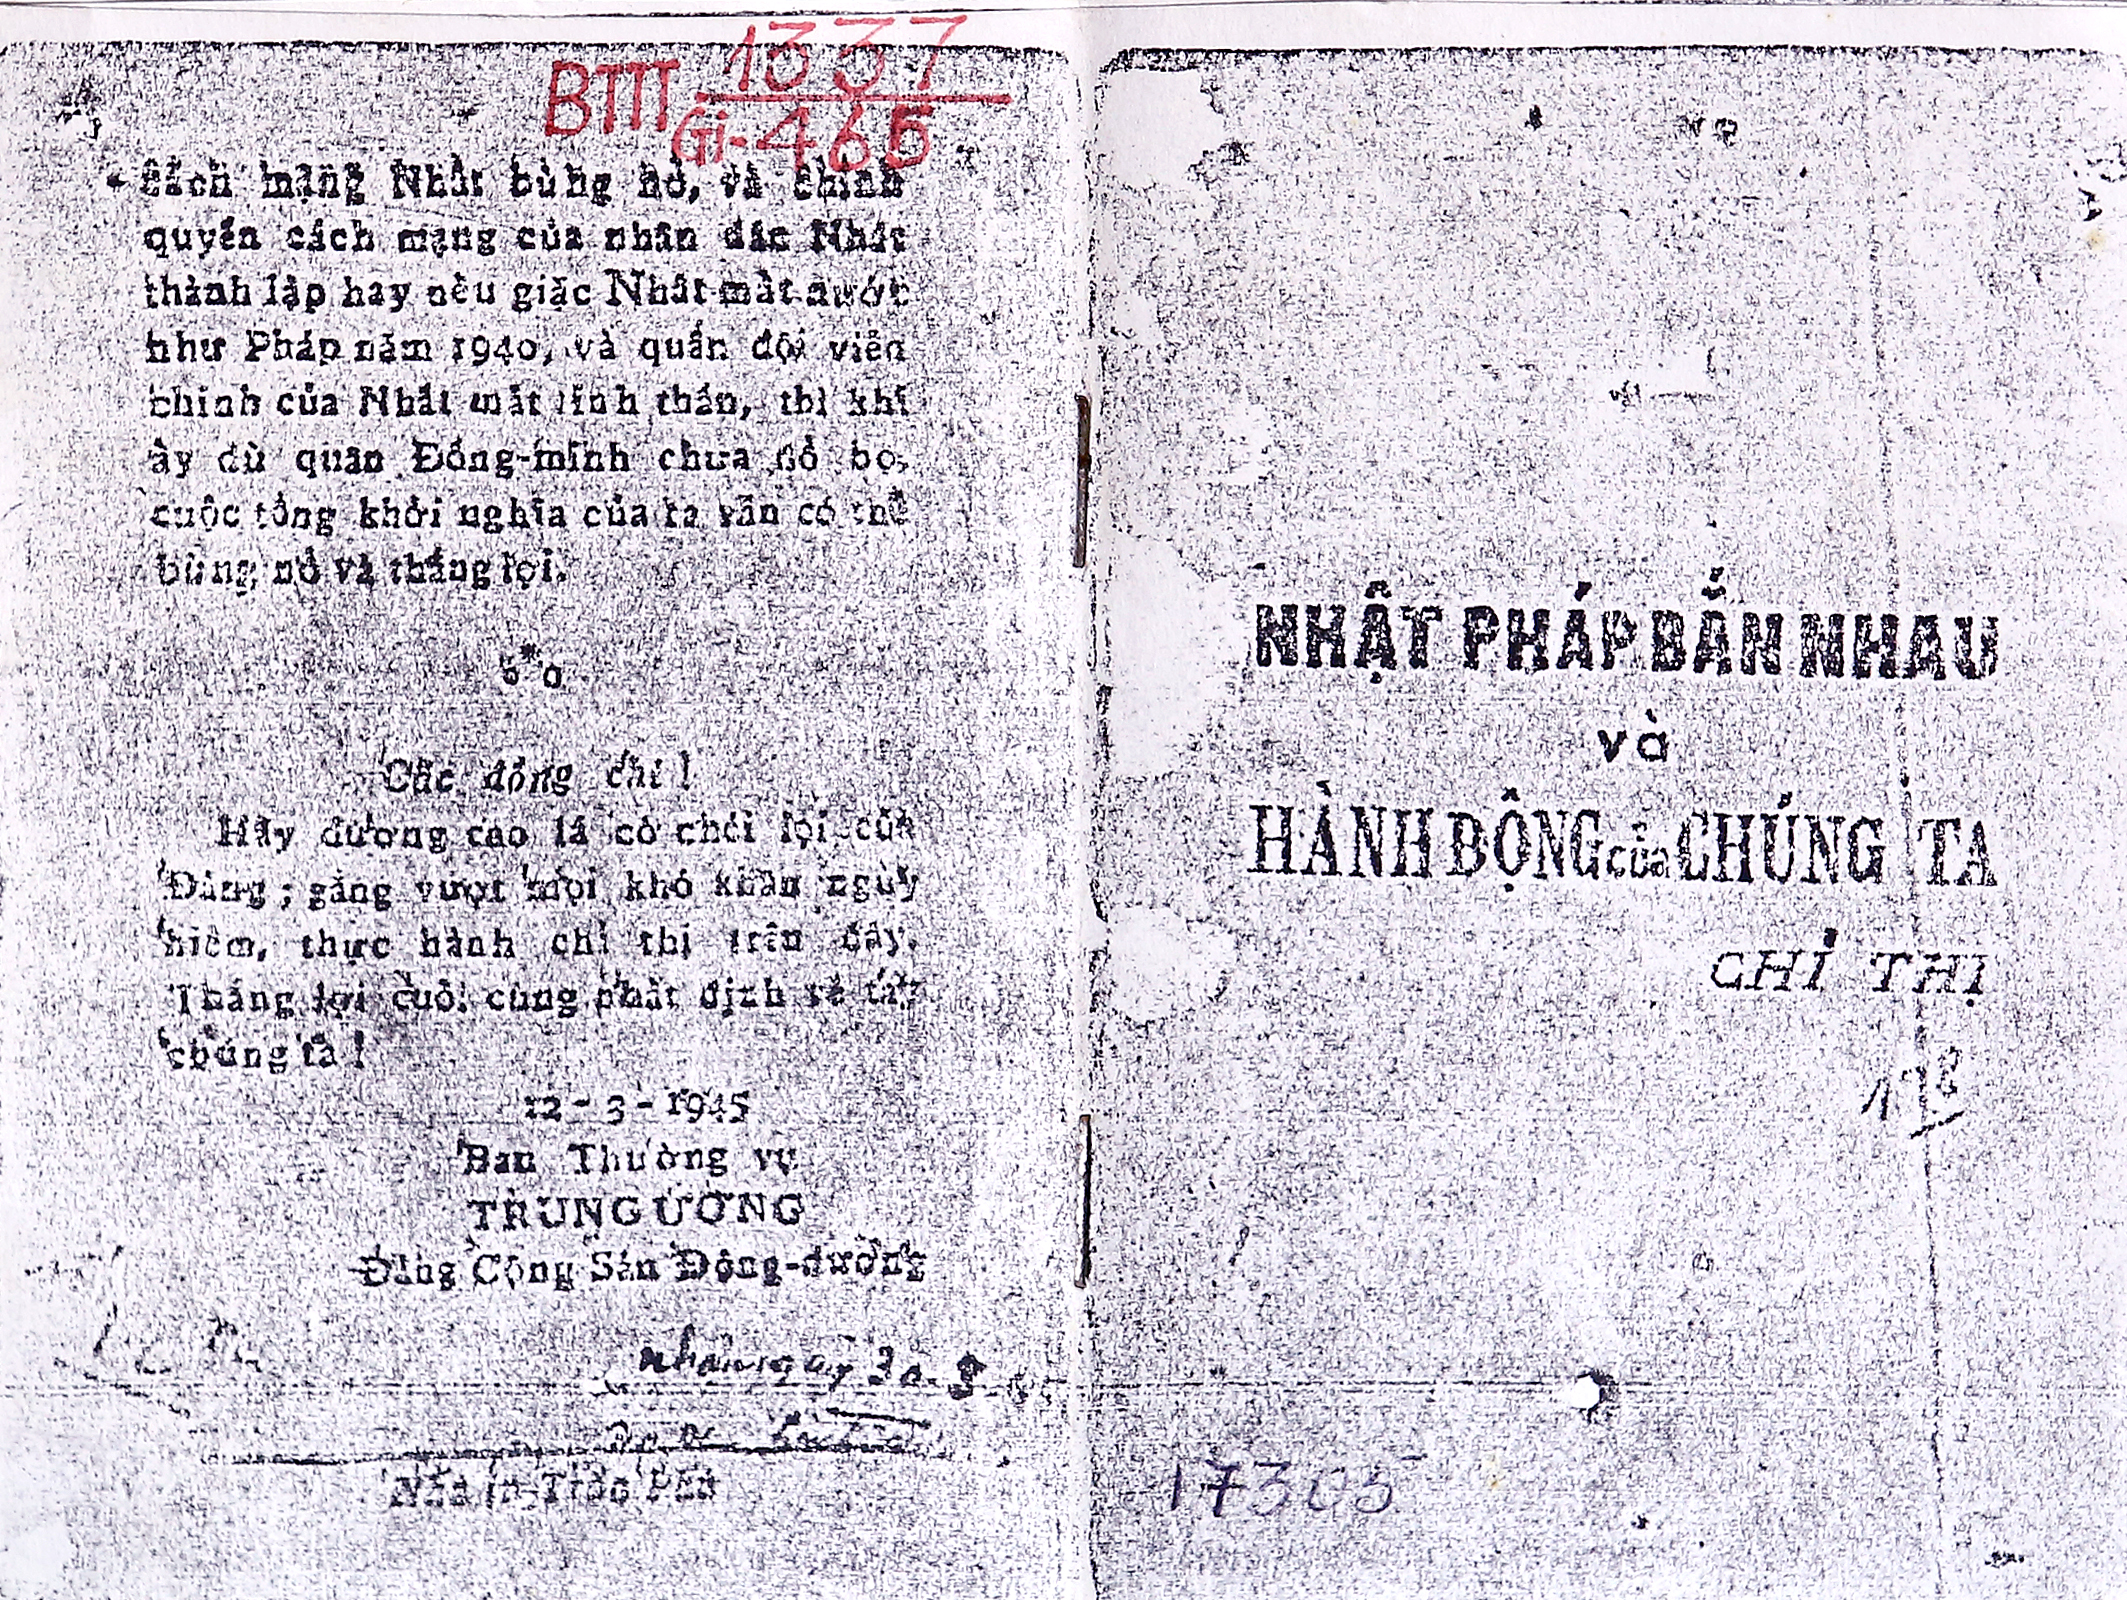 BTTT 1337
Gi-465
Cách mạng Nhật bùng nổ, và chính
quyền cách mạng của nhân dân Nhật
thành lập hay nếu giặc Nhật mất nước
như Pháp năm 1940, và quân đội viễn
chinh của Nhật mất tinh thần, thì khi
ấy dù quân Đồng-minh chưa đổ bộ,
cuộc tổng khởi nghĩa của ta vẫn có thể
bùng nổ và thắng lợi.
Các đồng chí !
Hãy dương cao lá cờ chói lọi của
Đảng ; gắng vượt mọi khó khăn nguy
hiểm, thực hành chỉ thị trên đây.
Thắng lợi cuối cùng nhất định về tay
chúng ta !
12 - 3 - 1945
Ban Thường vụ
TRUNG ƯƠNG
Đảng Cộng Sản Đông-dương
30.8
Nhà in Trần Phú
NHẬT PHÁP BẮN NHAU
và
HÀNH ĐỘNG của CHÚNG TA
CHỈ THỊ
17305